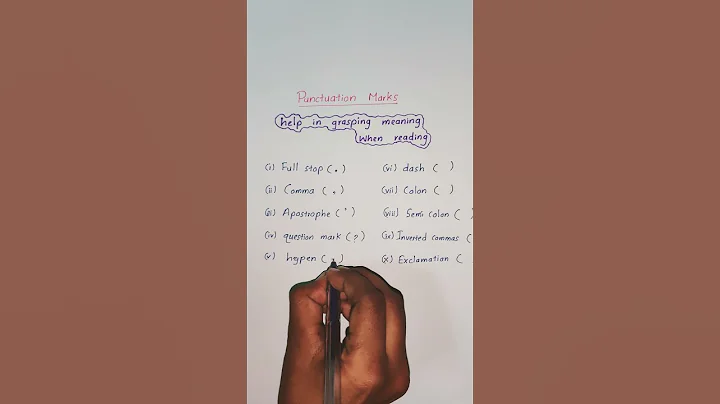 Punctuation Marks
help in grasping meaning
when reading
(i) Full stop (.)
(ii) Comma (,)
(iii) Apostrophe (')
(iv) question mark (?)
(v) hypen (-)
(vi) dash ( )
(vii) Colon ( )
(viii) Semi colon ( )
(ix) Inverted commas (
(x) Exclamation (